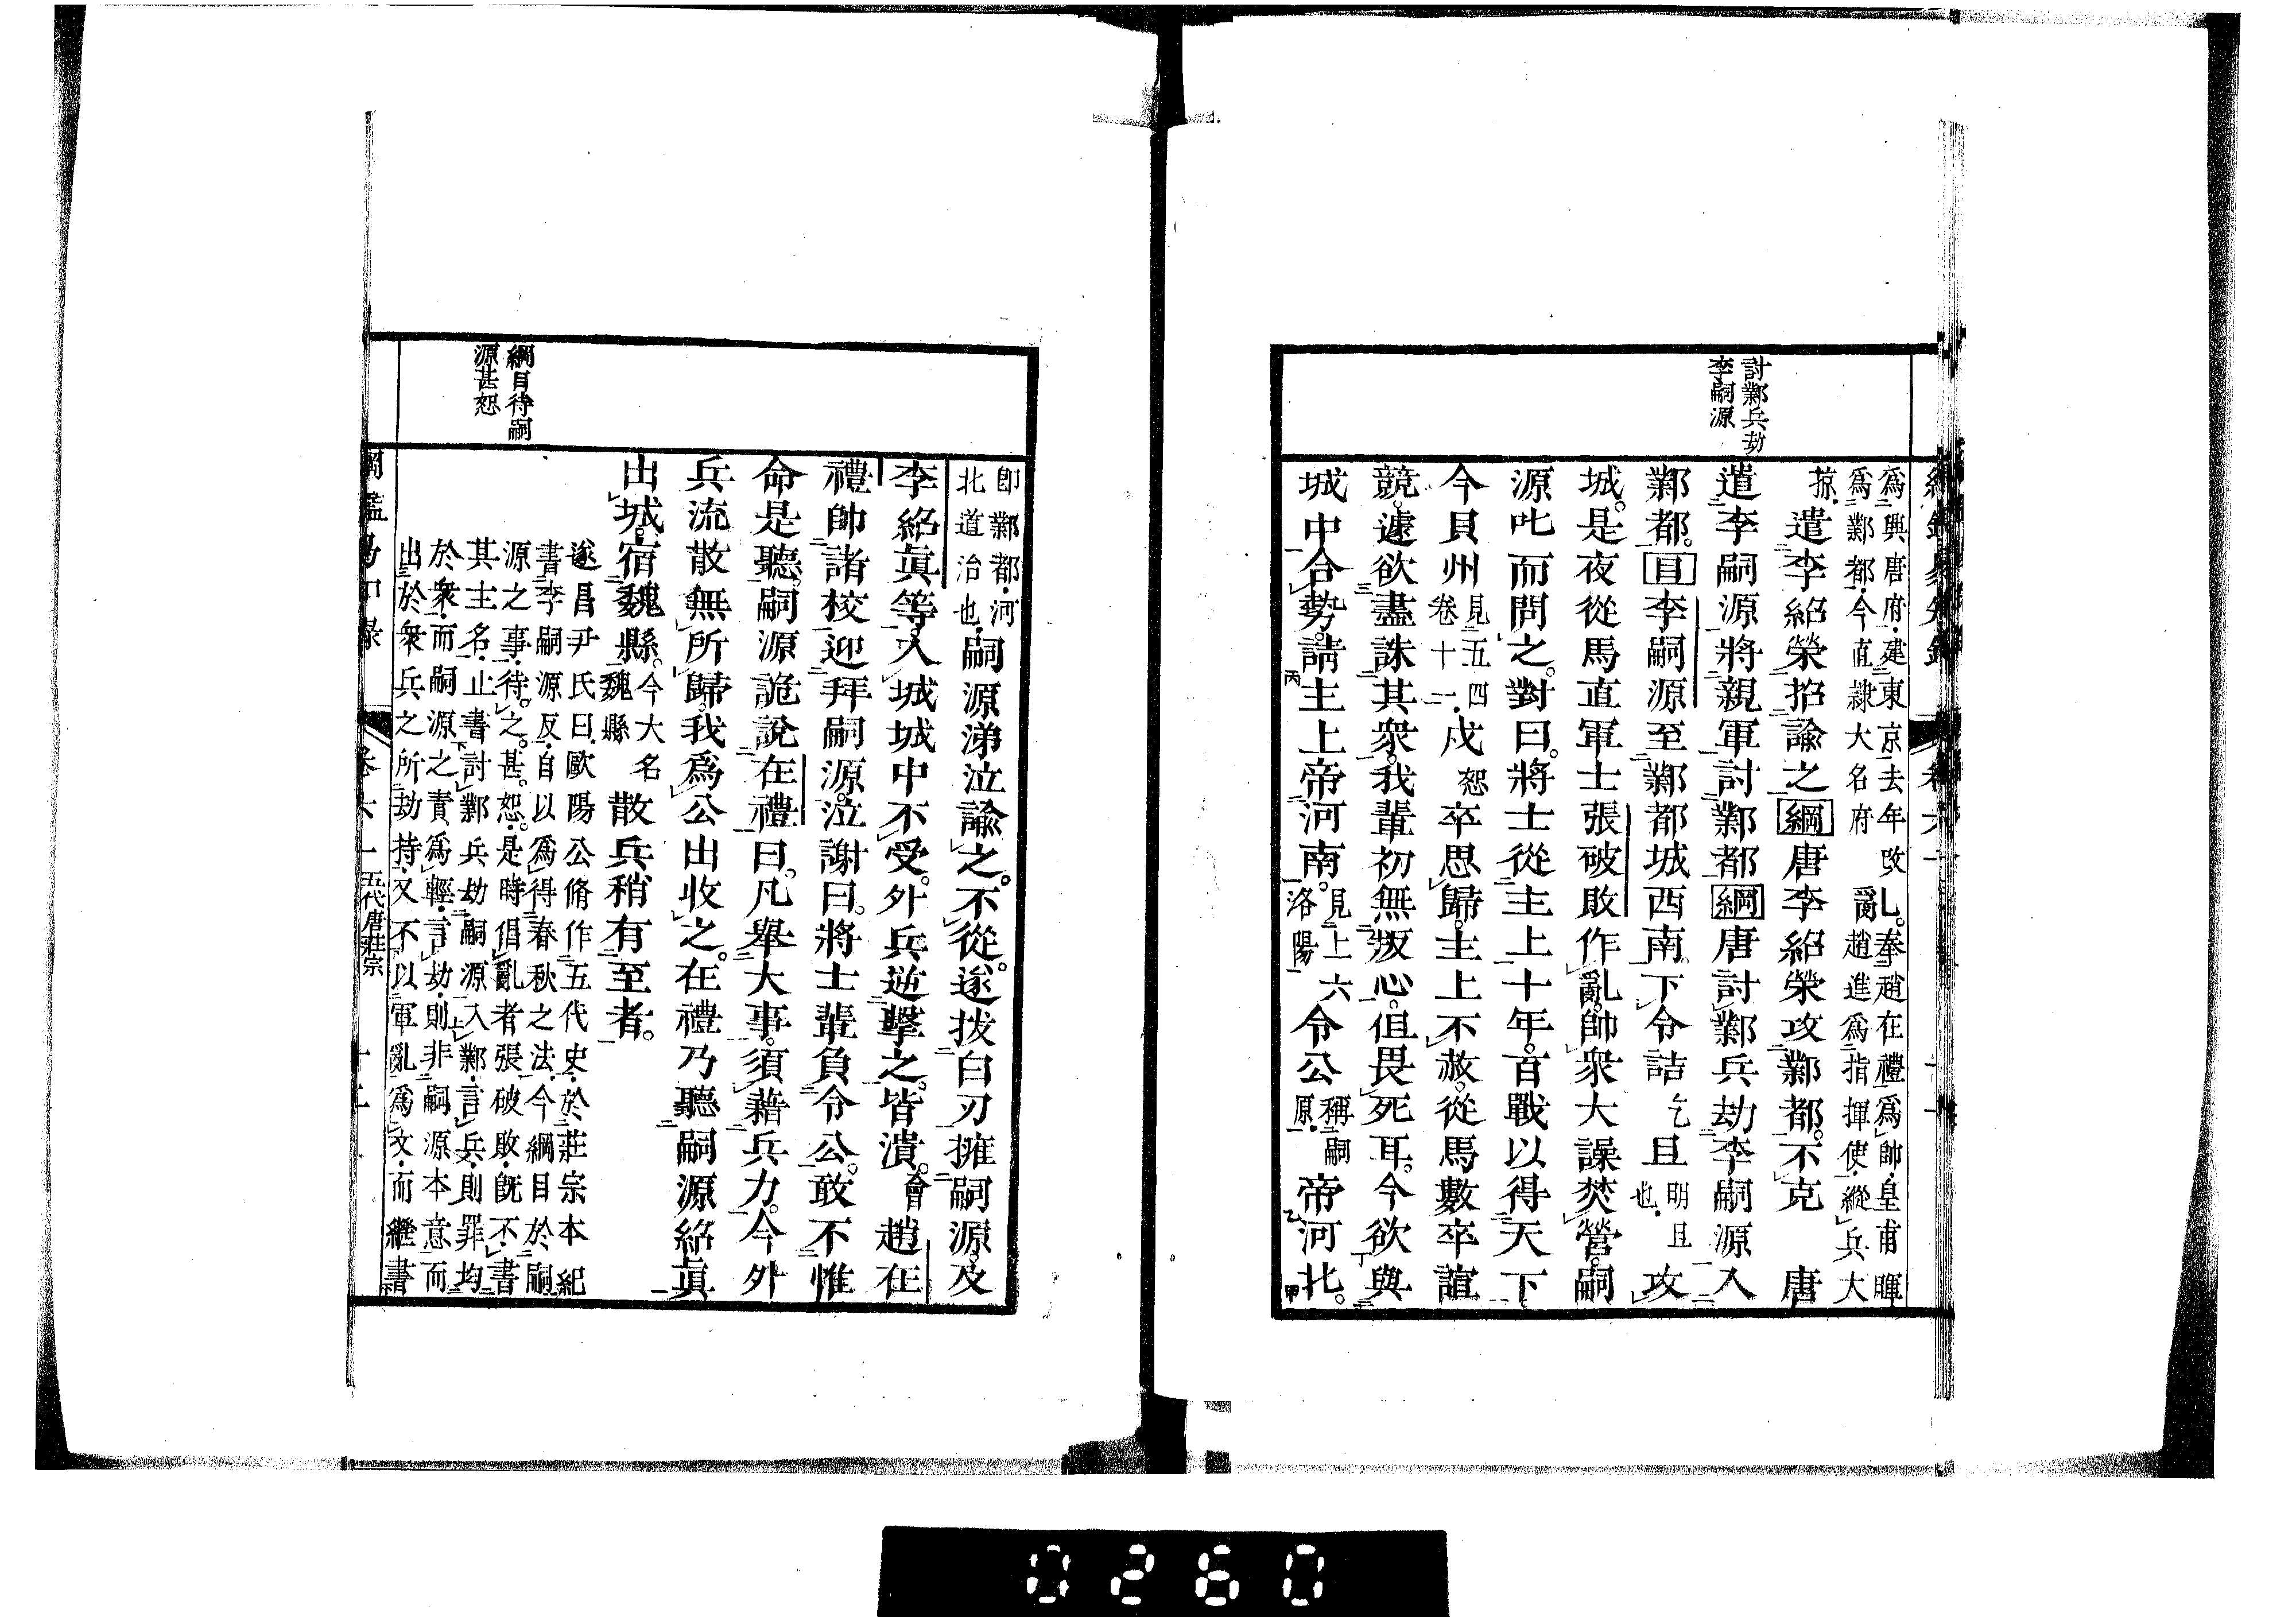 討鄴兵劫
李嗣源
爲興唐府建東京去年改
爲鄴都今直隷大名府
亂
奉趙在禮爲帥皇甫暉
趙進爲指揮使縱兵大
掠遣李紹榮招諭之綱唐李紹榮攻鄴都。不克 唐
遣李嗣源將親軍討鄴都綱唐討鄴兵劫李嗣源入
鄴都。目李嗣源至鄴都城西南下令詰乞且明且也攻
城。是夜從馬直軍士張破敗作亂。帥衆大譟焚營。嗣
源叱而問之。對曰。將士從主上十年。百戰以得天下
今貝州見五四卷十二戍恕卒思歸。主上不赦。從馬數卒諠
競。遽欲盡誅其衆。我輩初無叛心。但畏死耳。今欲與
城中合勢。請主上帝河南。見上六洛陽令公稱嗣原帝河北。
即鄴都河
北道治也嗣源涕泣諭之。不從。遂拔白刃擁嗣源及
李紹眞等入城城中不受。外兵逆擊之。皆潰。會趙在
禮帥諸校迎拜嗣源。泣謝曰。將士輩負令公。敢不惟
命是聽。嗣源詭說在禮曰。凡舉大事。須藉兵力。今外
兵流散無所歸。我爲公出收之。在禮乃聽嗣源紹眞
出城。宿魏縣。今大名魏縣散兵稍有至者。
綱目待嗣
源甚恕
遂昌尹氏曰歐陽公脩作五代史於莊宗本紀
書李嗣源反自以爲得春秋之法今綱目於嗣
源之事待之甚恕是時倡亂者張破敗既不書
其主名止書討鄴兵劫嗣源入鄴言兵則罪均
於衆而嗣源之責爲輕言劫則非嗣源本意而
出於衆兵之所劫持又不以軍亂爲文而繼書
五代唐莊宗
0260